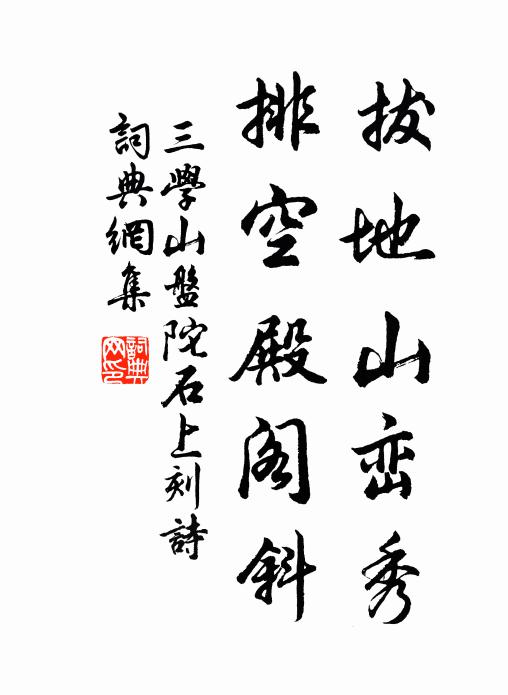 拔地山峦秀
排空殿阁斜
三學山盤陀石上刻詩
詞典網集
詞典網印